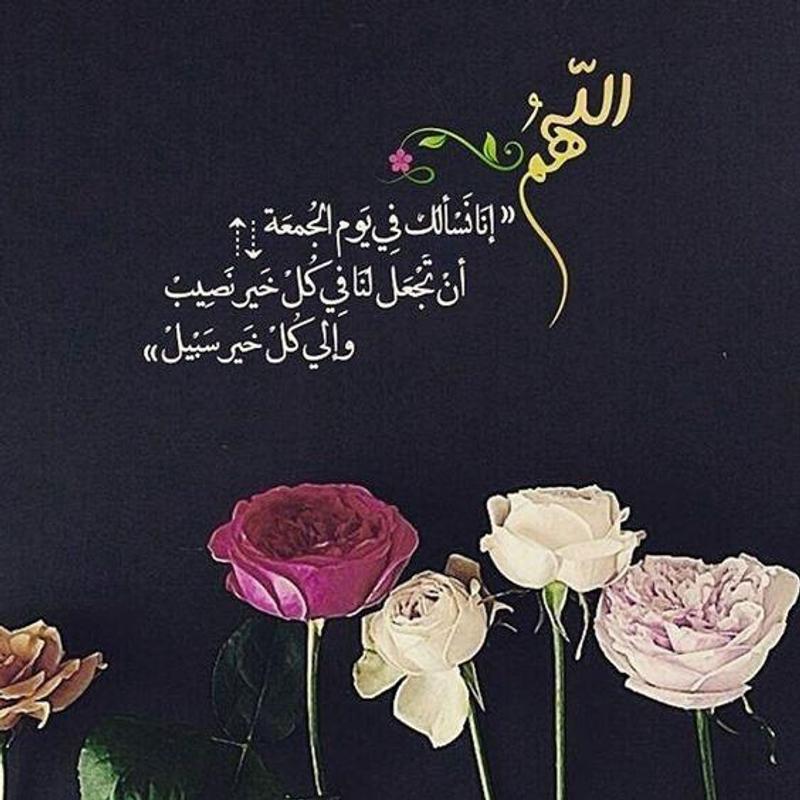 اللّهُم
« إنَا نَسْألكْ فِي يَوم الْجُمعَة
أنْ تَجْعَل لنَا فِي كُلْ خَير نَصِيبْ
وإلي كُلْ خَير سَبْيلْ »